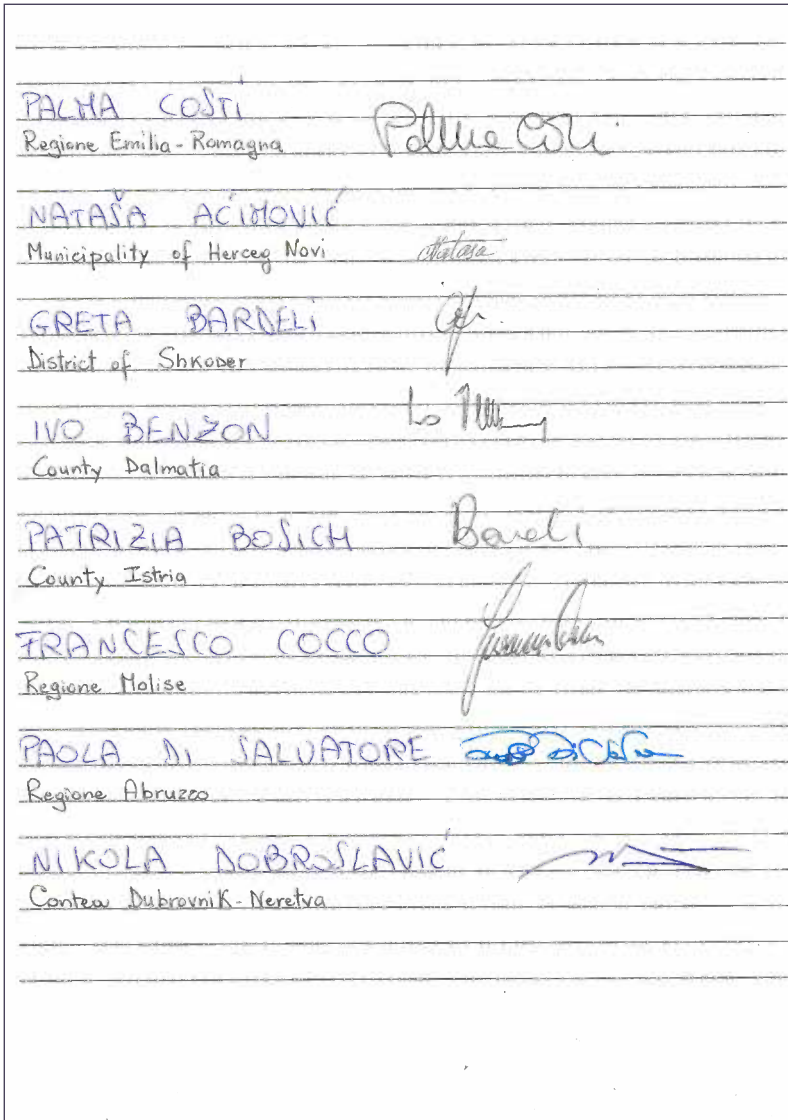 PALMA COSTI Palma Costi
Regione Emilia-Romagna
NATAŠA AĆIMOVIĆ Natasa
Municipality of Herceg Novi
GRETA BARDELI
District of Shkoder
IVO BENZON
County Dalmatia
PATRIZIA BOSICH
County Istria
FRANCESCO COCCO
Regione Molise
PAOLA DI SALVATORE
Regione Abruzzo
NIKOLA DOBROSLAVIĆ
Contea Dubrovnik-Neretva